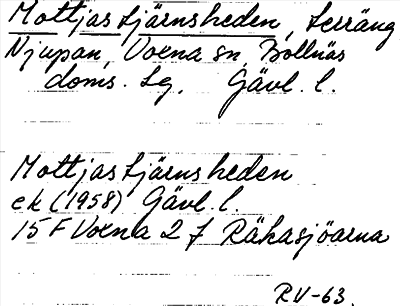 Mottjastjärnsheden, terräng
Njupan, Voxna sn, Bollnäs
doms. lg, Gävl. l.
Mottjastjärnsheden
ek (1958) Gävl. l.
15 F Voxna 2 f Rähasjöarna
RV-63.